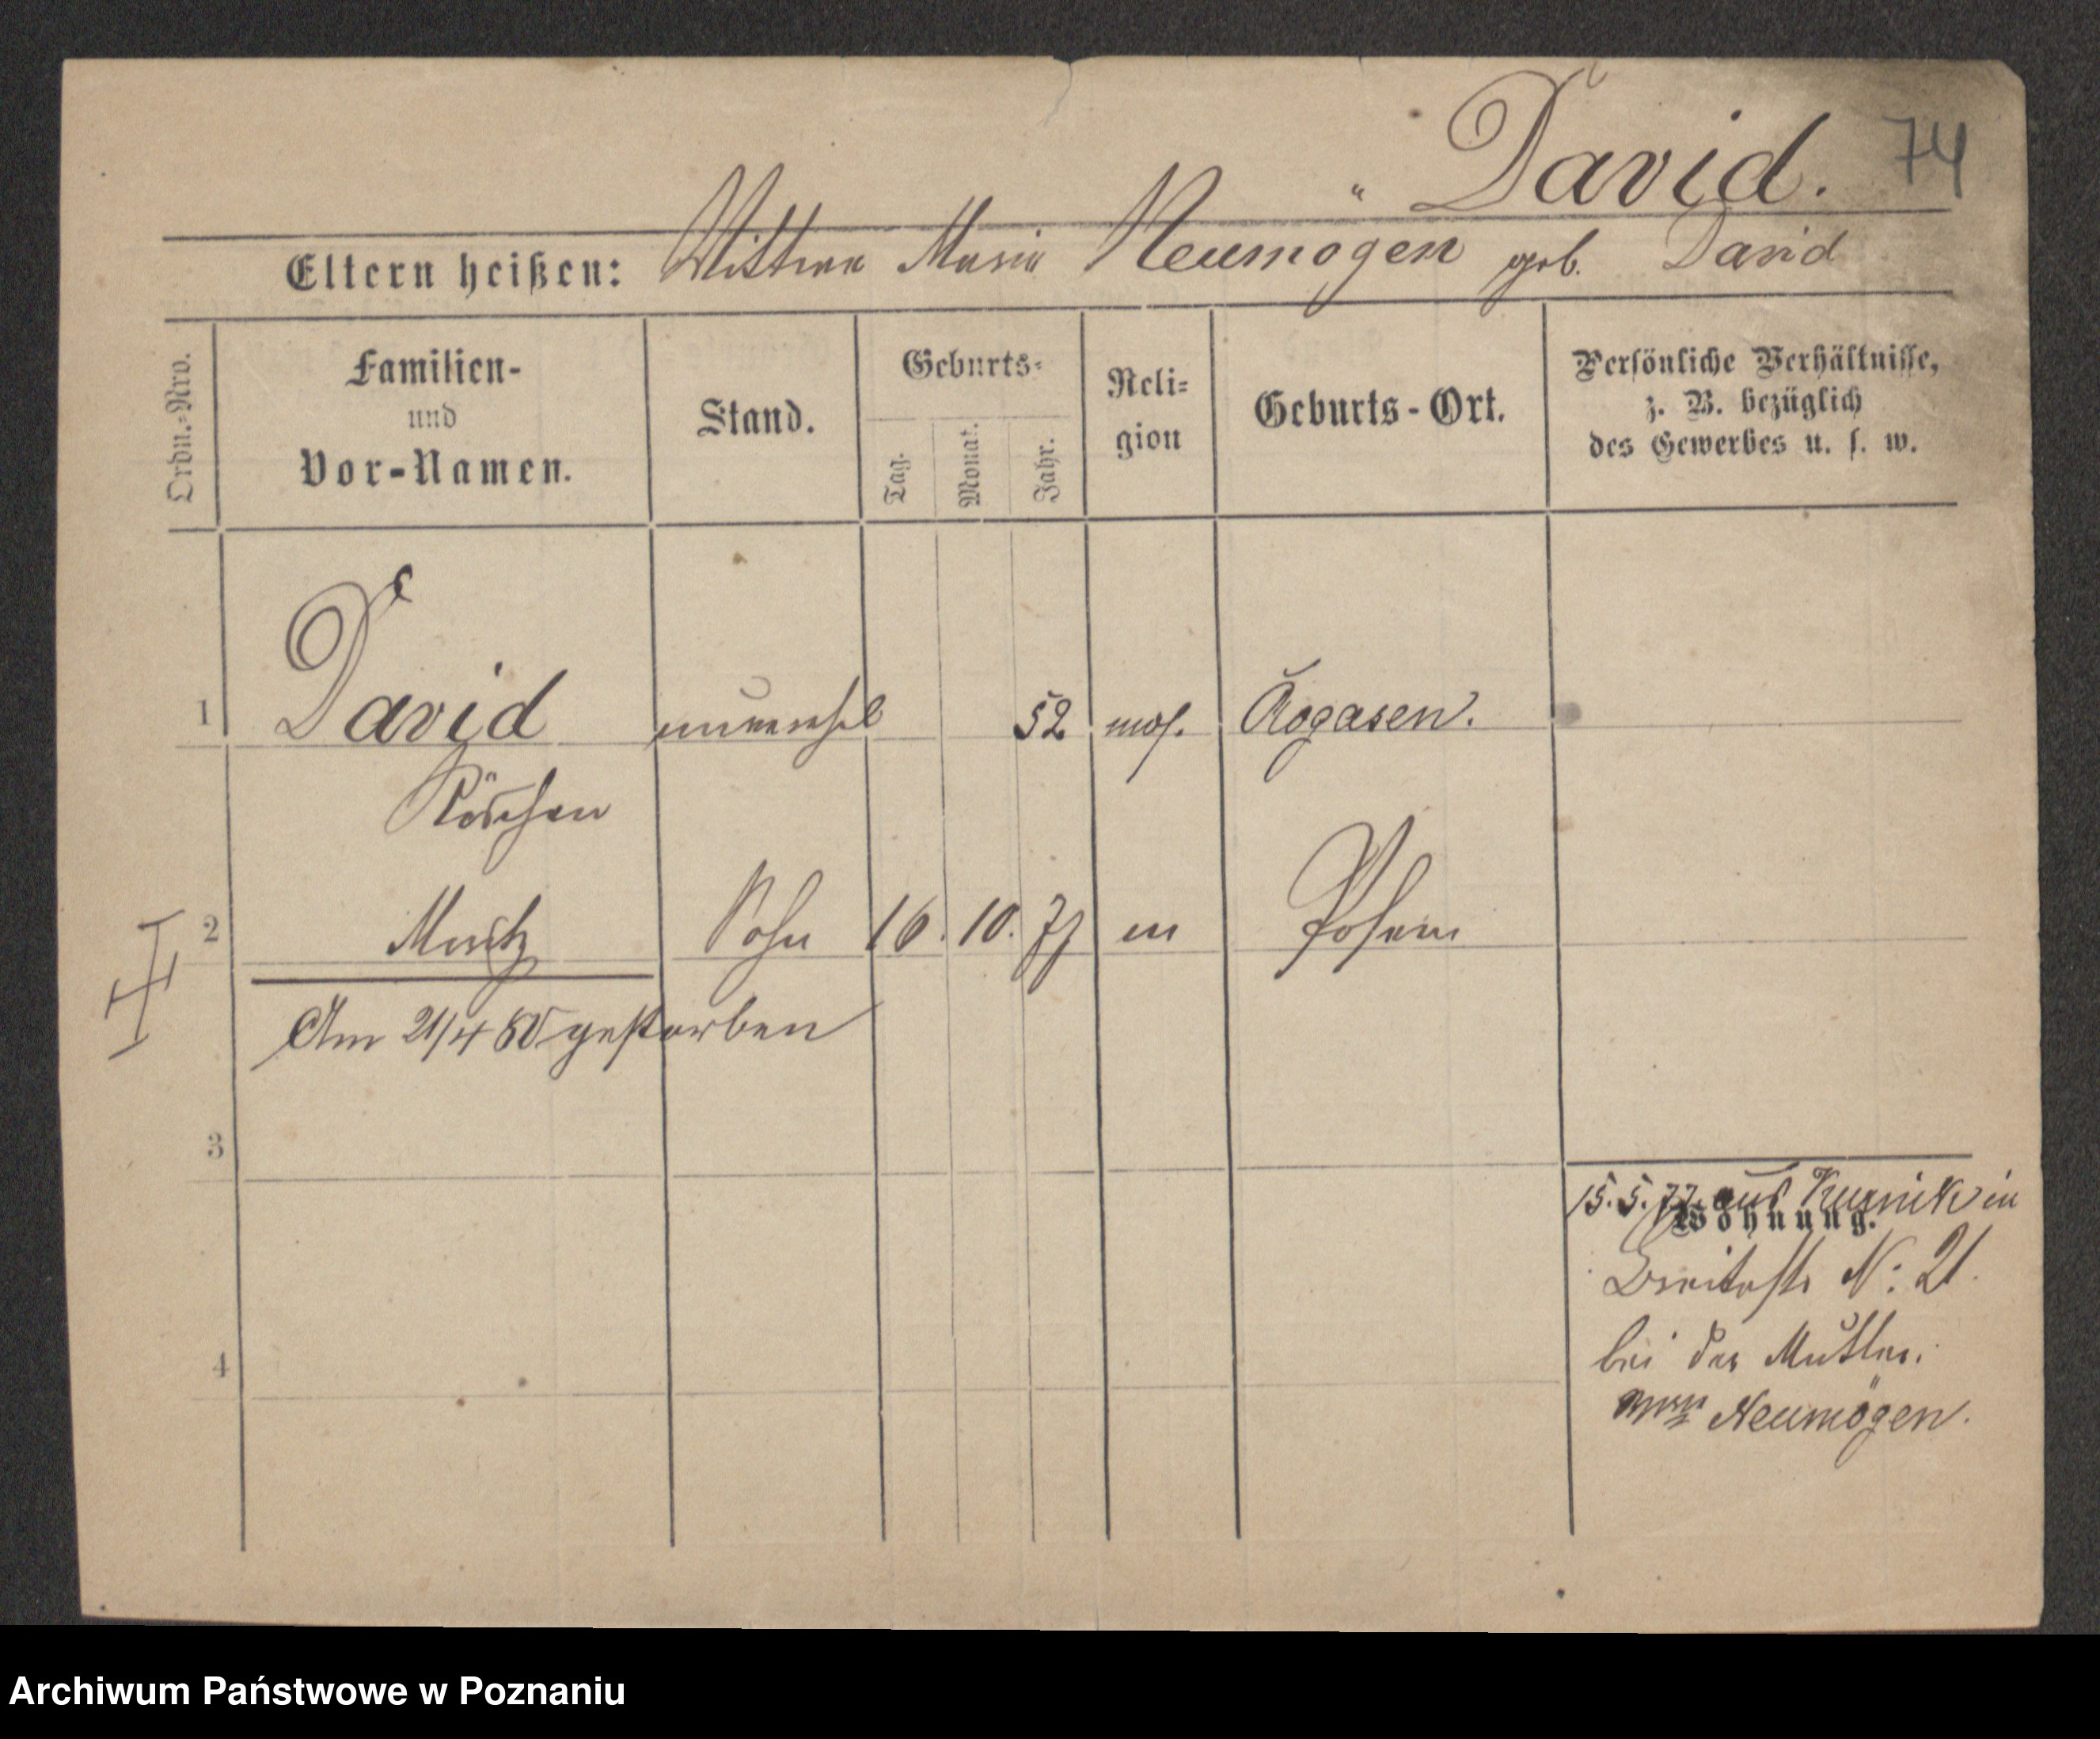 David. 74
Eltern heißen: Wittwe Marie Neumögen geb. David
Ordn.-Nro.
Familien-
und
Vor-Namen.
Stand.
Geburts-
Tag.
Monat.
Jahr.
Reli-
gion
Geburts-Ort.
Persönliche Verhältnisse,
z. B. bezüglich
des Gewerbes u. s. w.
1 David unverehel 52 mos. Rogasen.
Röschen
2 Moritz Sohn 16. 10. 77 Posen
Am 21/4 80 gestorben
3
15. 5. 77. aus Kurnik in
Wohnung.
Breitestr N: 21.
4
bei der Mutter.
Neumögen.